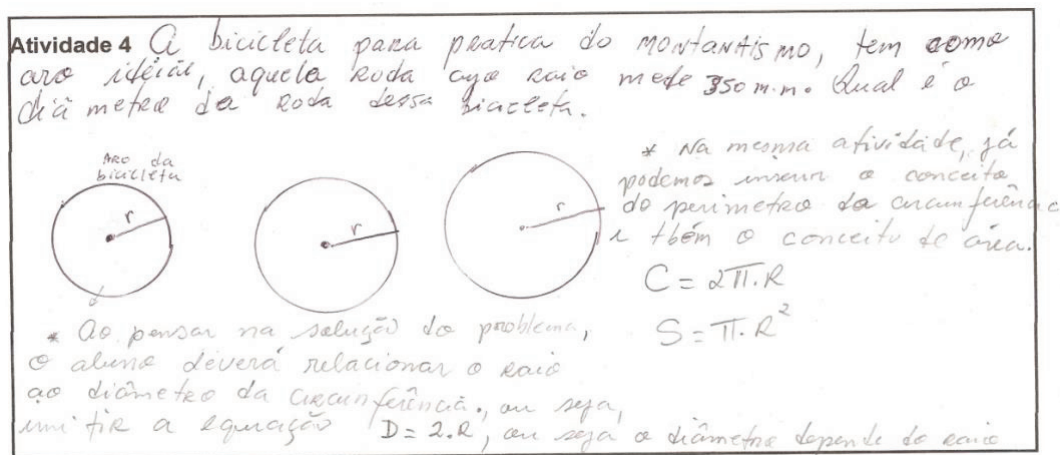 Atividade 4 A bicicleta para pratica do MONTANTISMO, tem como
aro idéial, aquela roda cujo raio mede 350 m.m. Qual é o
diâmetro da roda dessa bicicleta.
Aro da
bicicleta
r
r
r
* Na mesma atividade, já
podemos inserir o conceito
do perimetro da circunferência
e tbém o conceito de área.
C = 2π.R
S = π.R²
* Ao pensar na solução do problema,
o aluno deverá relacionar o raio
ao diâmetro da circunferência., ou seja,
a equação D = 2.R, ou seja o diâmetro depende do raio